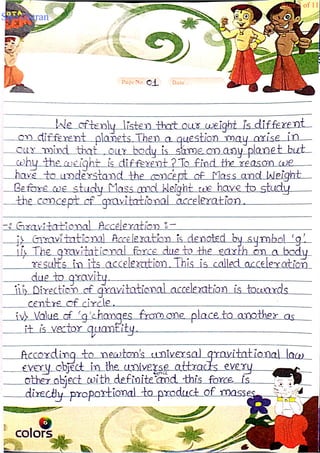 of 11
Page No. 01 Date
We oftenly listen that our weight is different
on different planets. Then a question may arise in
our mind that, our body is same on any planet but
why the weight is different? To find the reason we
have to understand the concept of Mass and Weight
Before we study Mass and Weight we have to study
the concept of gravitational acceleration.
-: Gravitational Acceleration :-
i) Gravitational Acceleration is denoted by symbol 'g'.
ii) The gravitational force due to the earth on a body
results in its acceleration. This is called acceleration
due to gravity.
iii) Direction of gravitational acceleration is towards
centre of circle.
iv) Value of 'g' changes from one place to another as
it is vector quantity.
According to newton's universal gravitational law
every object in the universe attracts every
other object with definite and this force is
directly proportional to product of masses
colors